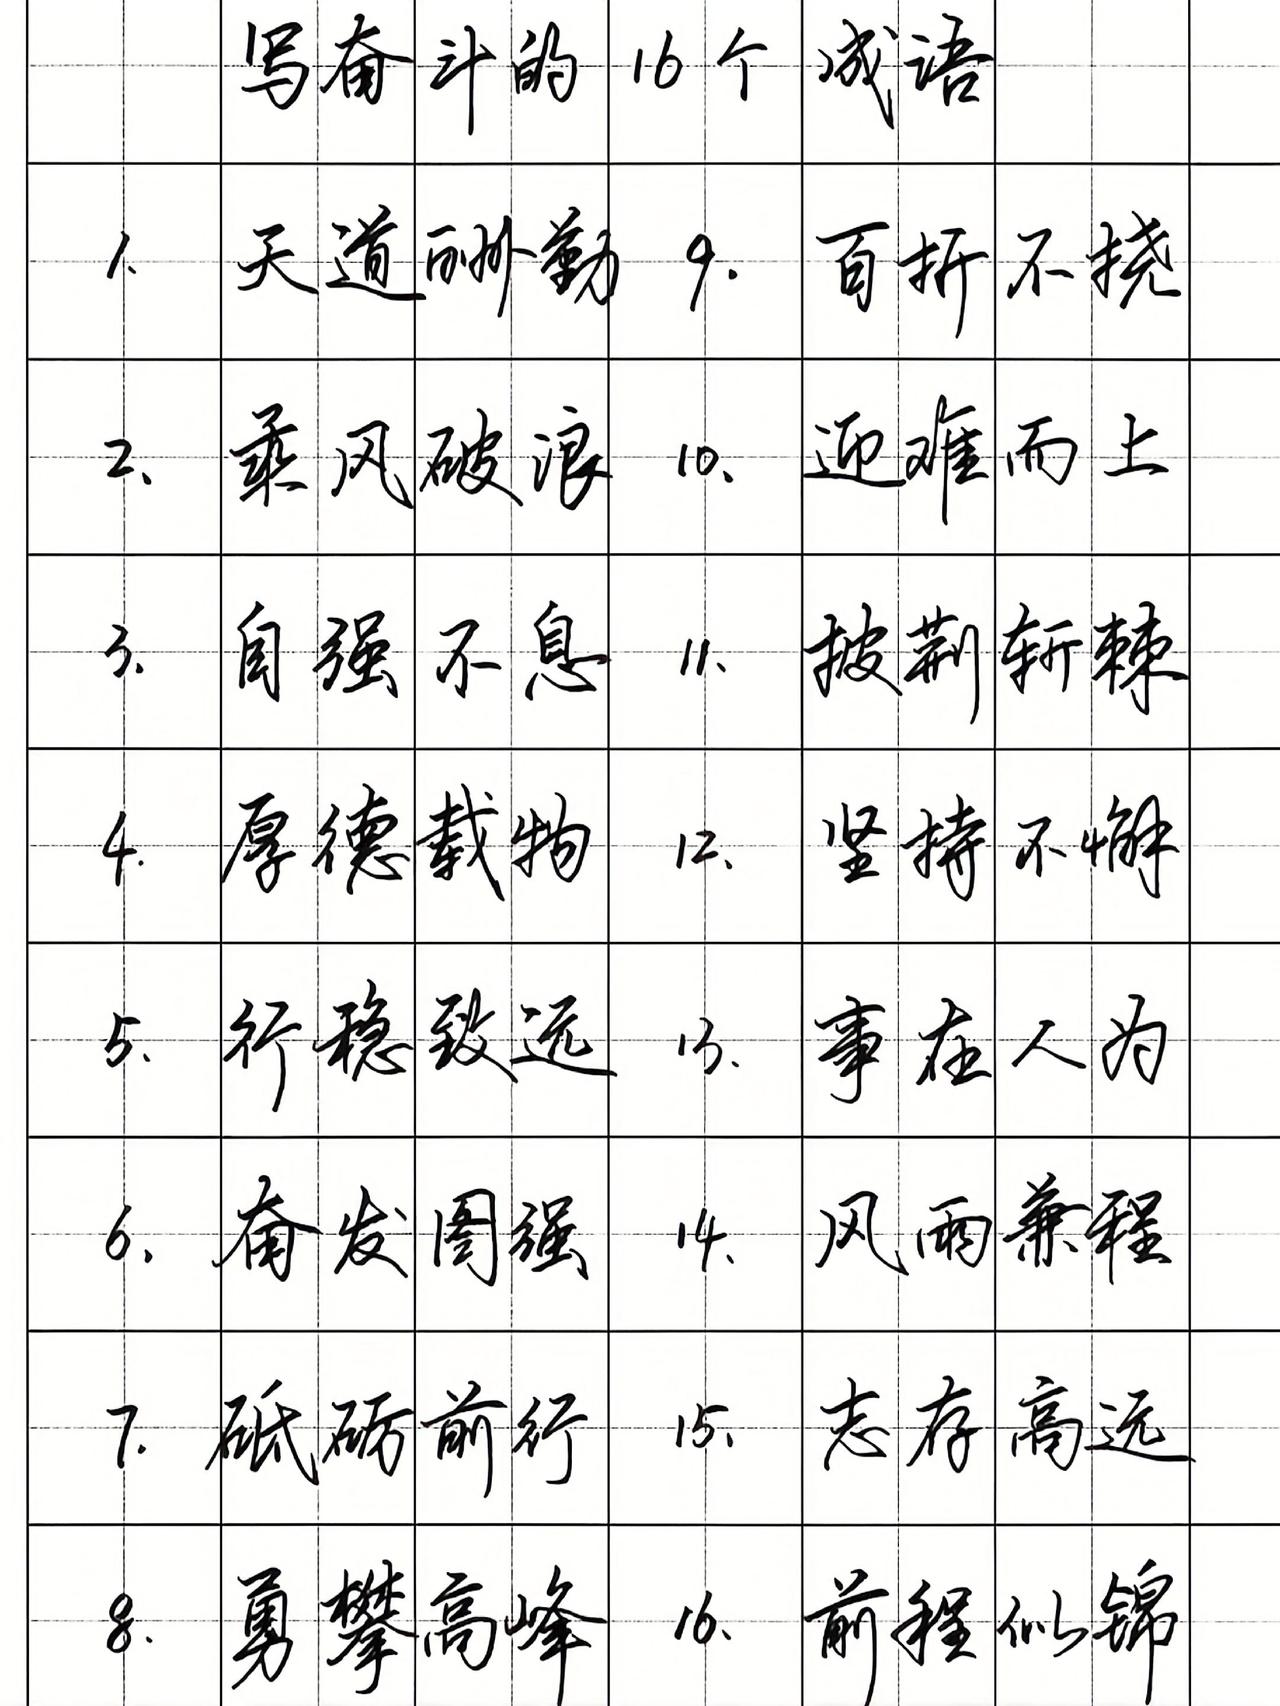 写奋斗的16个成语
1. 天道酬勤 9. 百折不挠
2. 乘风破浪 10. 迎难而上
3. 自强不息 11. 披荆斩棘
4. 厚德载物 12. 坚持不懈
5. 行稳致远 13. 事在人为
6. 奋发图强 14. 风雨兼程
7. 砥砺前行 15. 志存高远
8. 勇攀高峰 16. 前程似锦